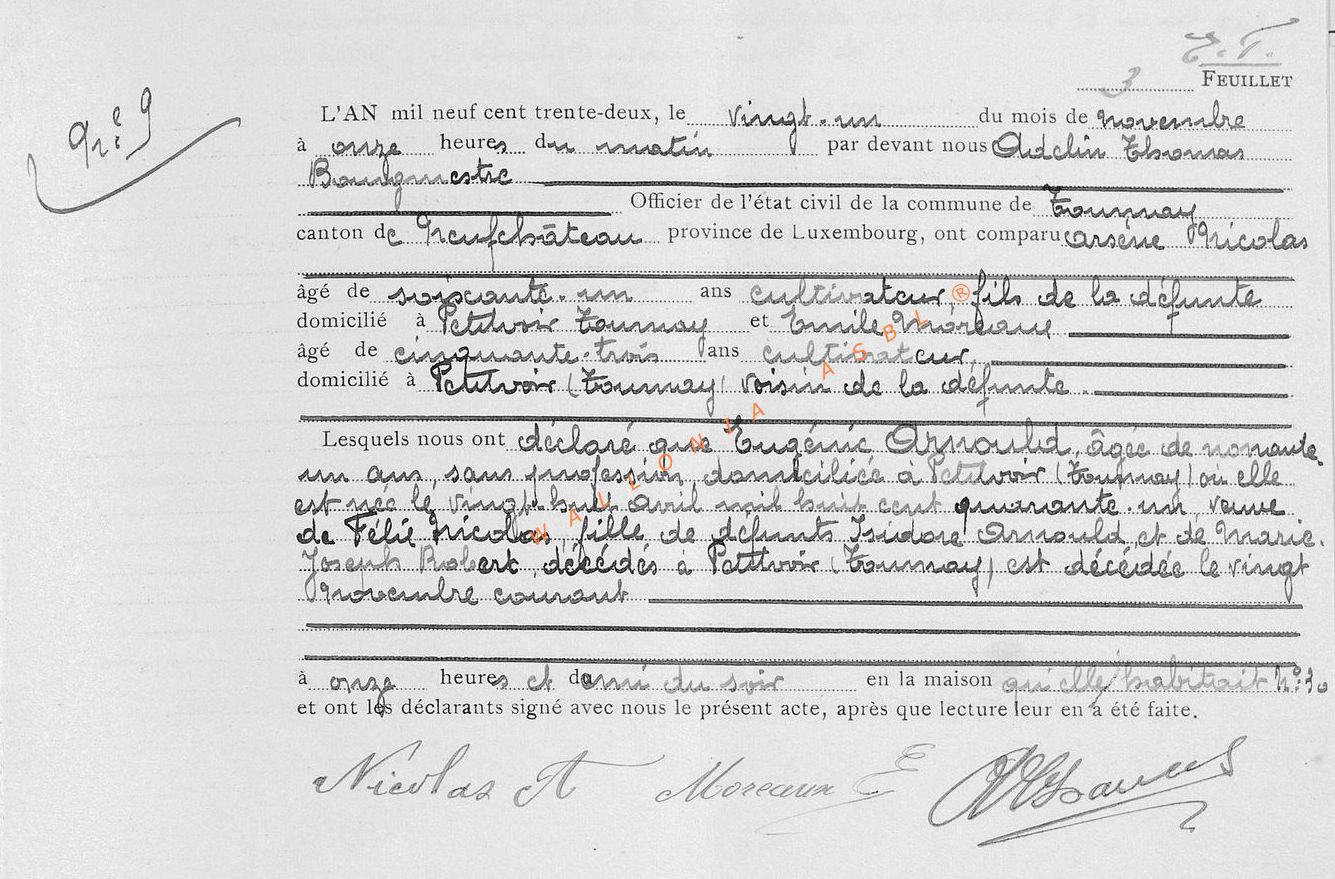 E.T.
3 FEUILLET
N.º 9
L'AN mil neuf cent trente-deux, le vingt-un du mois de novembre
à onze heures du matin par devant nous Adelin Thomas
Bourgmestre
Officier de l'état civil de la commune de Tournay
canton de Neufchâteau province de Luxembourg, ont comparu Arsène Nicolas
âgé de soixante-un ans cultivateur fils de la défunte
domicilié à Petitvoir Tournay et Emile Moreaux
âgé de cinquante-trois ans cultivateur,
domicilié à Petitvoir (Tournay) voisin de la défunte.
Lesquels nous ont déclaré que Eugénie Arnould, âgée de nonante-
un ans, sans profession, domiciliée à Petitvoir (Tournay) où elle
est née le vingt-huit avril mil huit cent quarante-un, veuve
de Félix Nicolas, fille de défunts Isidore Arnould et de Marie-
Joseph Robert, décédés à Petitvoir (Tournay) est décédée le vingt
novembre courant
à onze heures et demi du soir en la maison qu'elle habitait Nº 30
et ont les déclarants signé avec nous le présent acte, après que lecture leur en a été faite.
Nicolas A Moreaux E AThomas
WALLONIA ASBL ®